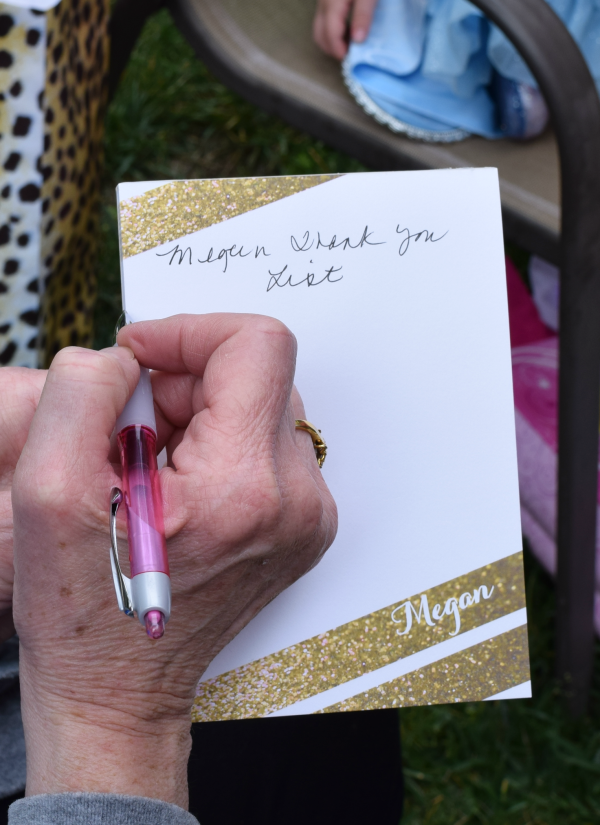 Megan Thank You
List
Megan